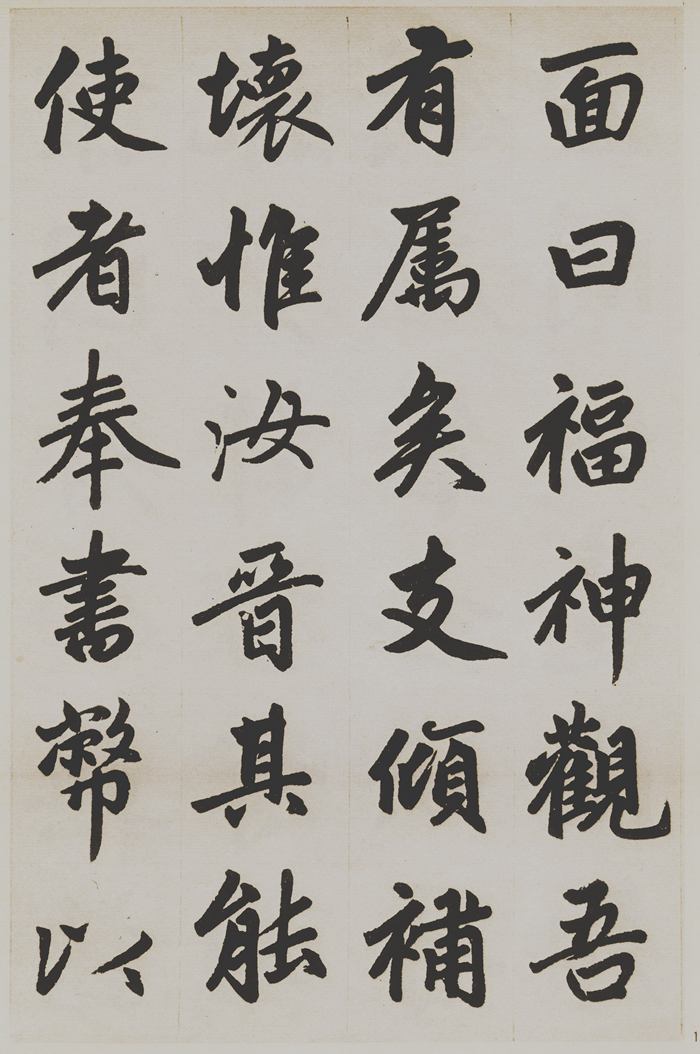 面曰福神觀吾
有属矣支傾補
壊惟汝晉其能
使者奉書幣以
1